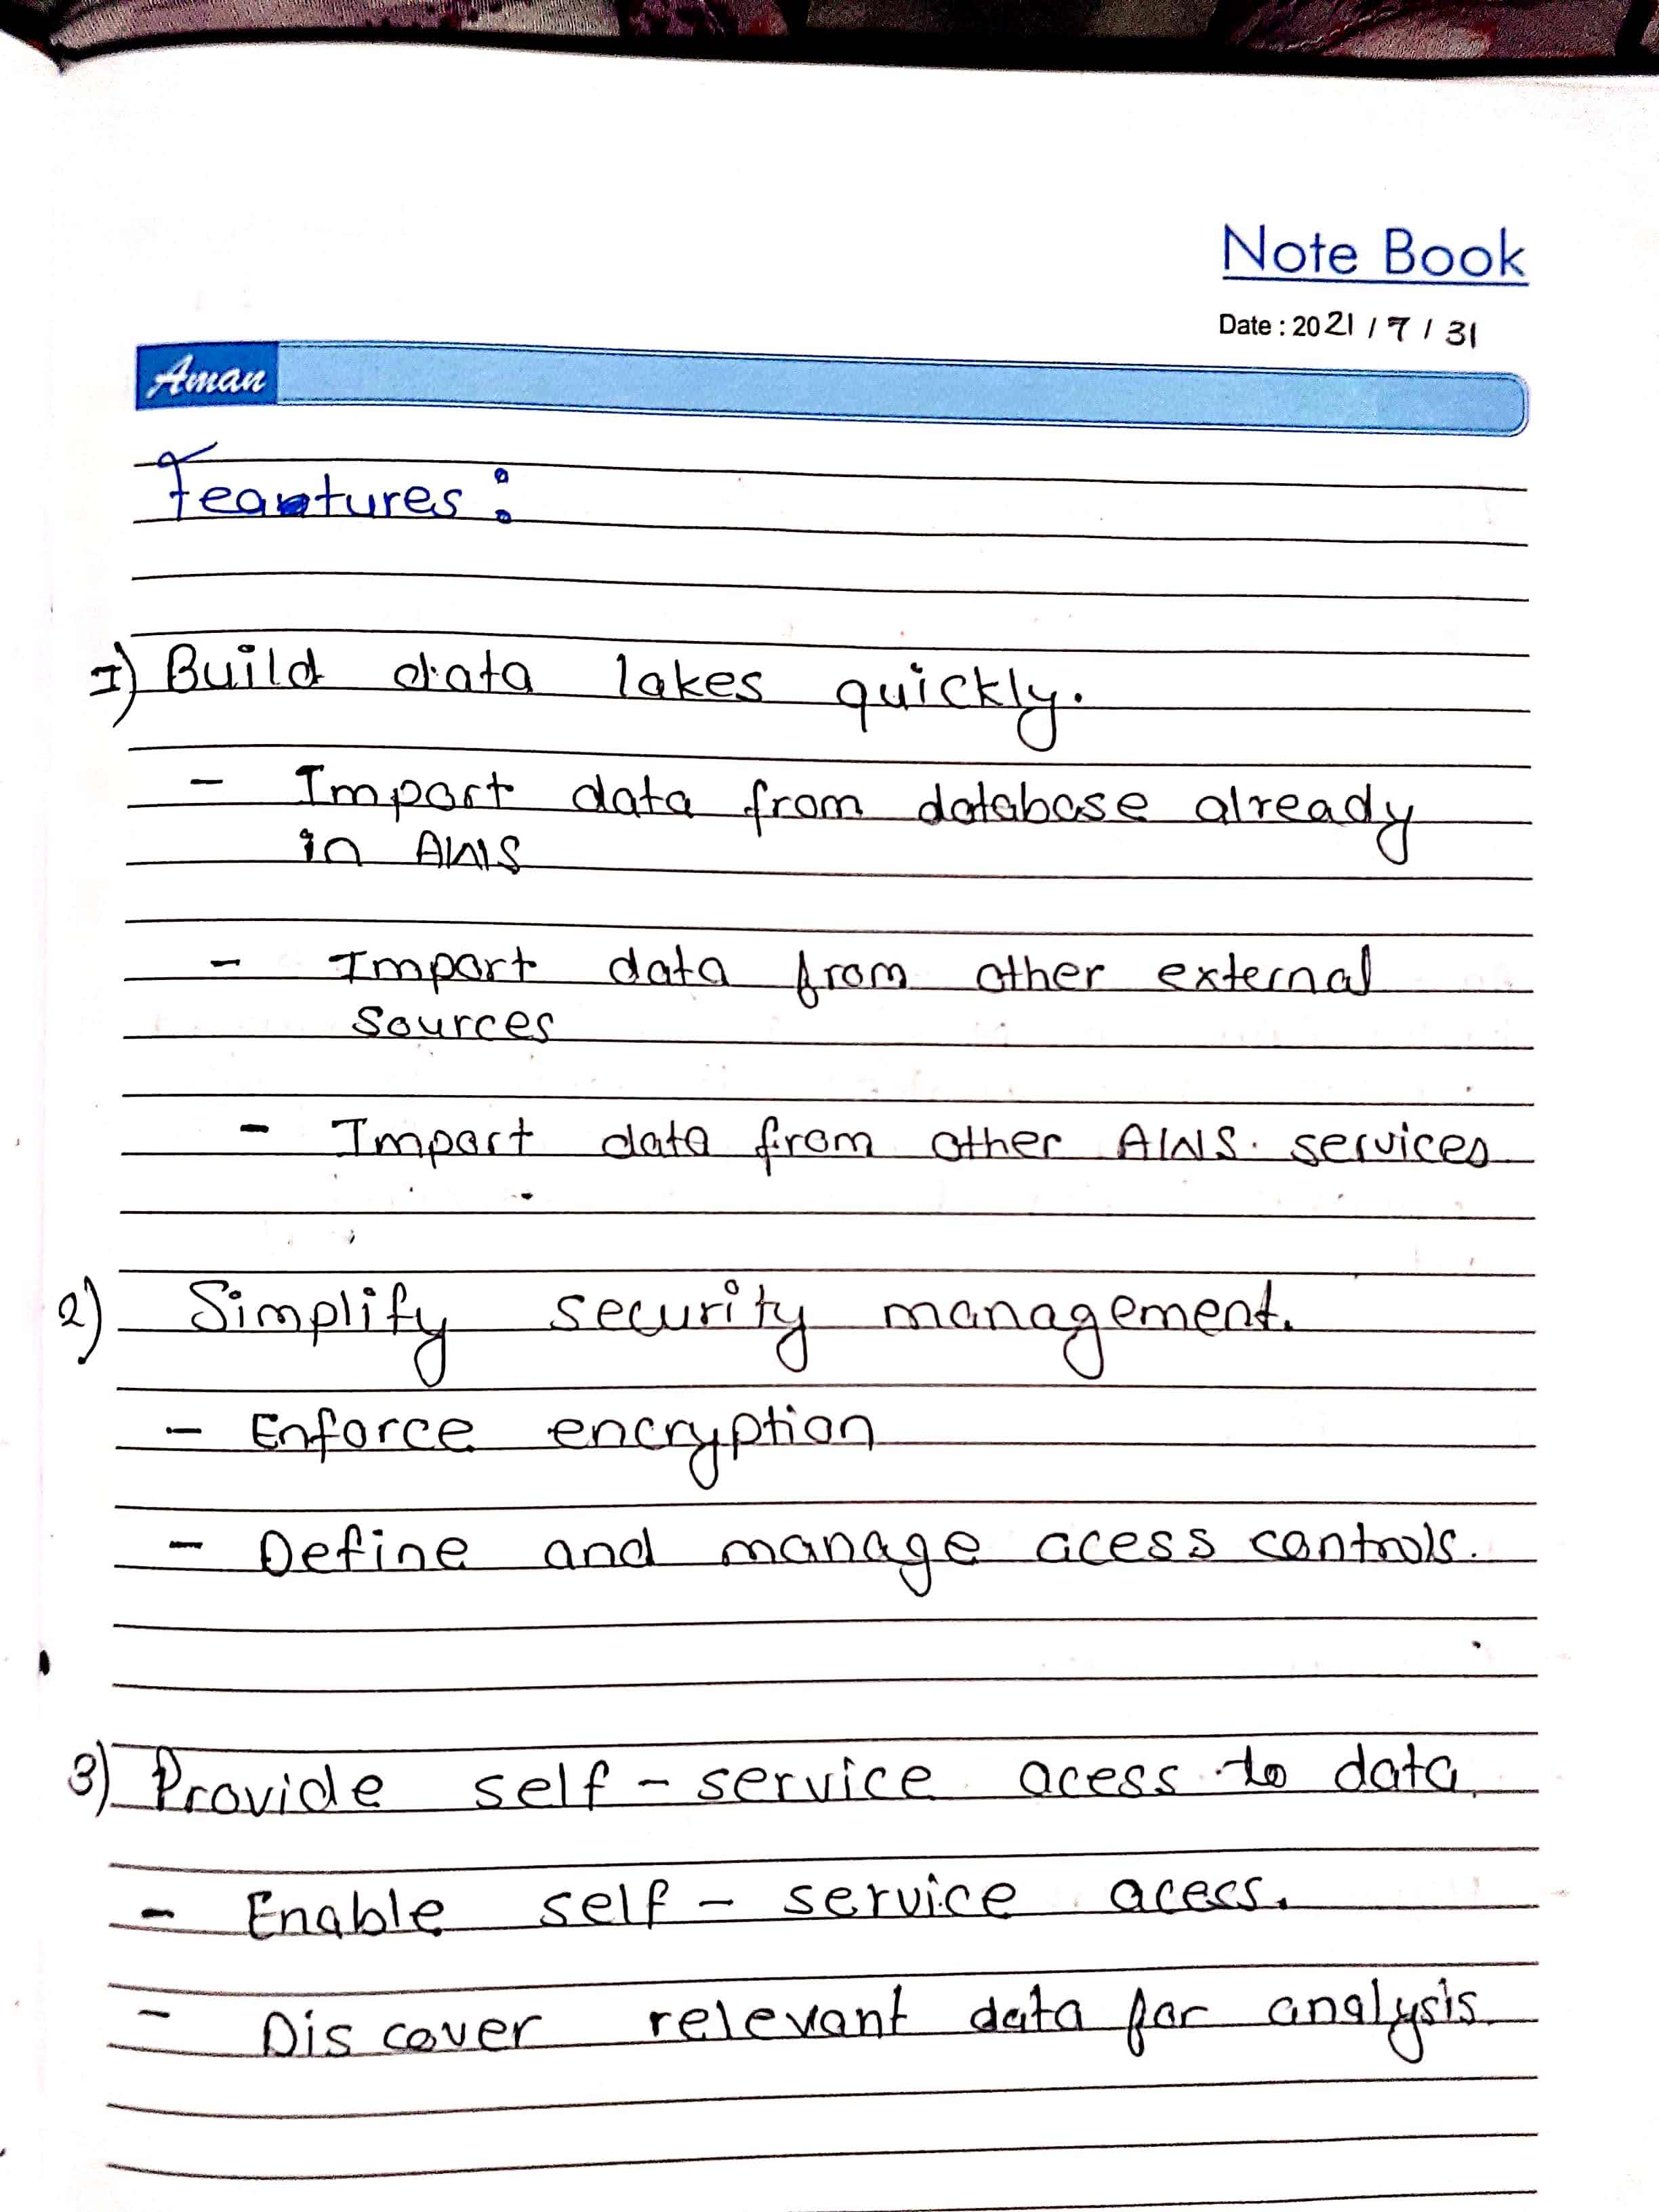 Note Book
Date : 2021 / 7 / 31
Aman
Features :
1) Build data lakes quickly.
- Import data from database already
in AWS
- Import data from other external
sources
- Import data from other AWS services
2) Simplify security management.
- Enforce encryption
- Define and manage acess controls.
3) Provide self - service acess to data
- Enable self - service acess.
- Discover relevant data for analysis